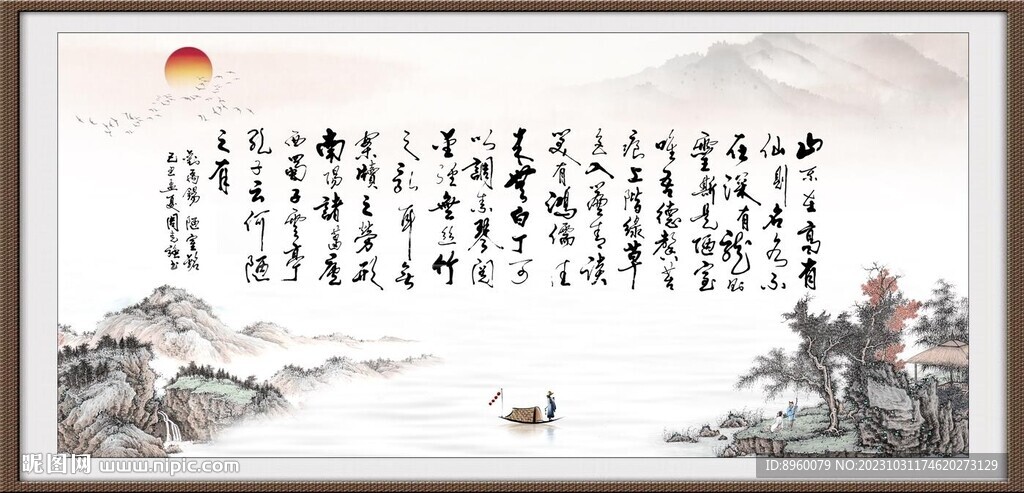 山不在高有
仙則名水不
在深有龍則
靈斯是陋室
唯吾德馨苔
痕上階緑草
色入簾青談
笑有鴻儒往
来無白丁可
以調素琴閲
金經無丝竹
之乱耳無
案牘之勞形
南陽諸葛廬
西蜀子雲亭
孔子云何陋
之有
劉禹錫 陋室銘
昵图网 www.nipic.com
ID:8960079 NO:20231031174620273129